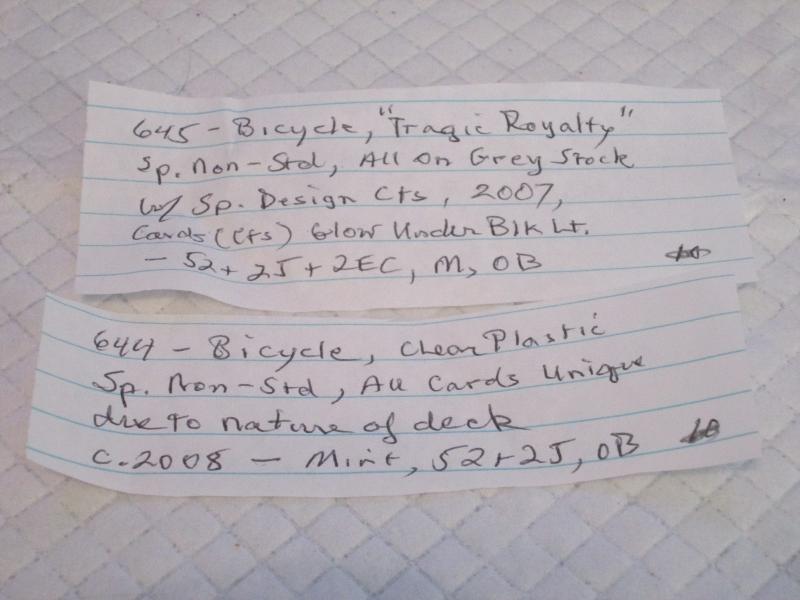 645 - Bicycle, "Tragic Royalty"
Sp. Non-Std, All On Grey Stock
w/ Sp. Design Cts, 2007,
Cards (Cts) Glow Under Blk Lt.
- 52 + 2J + 2EC, M, OB
644 - Bicycle, Clear Plastic
Sp. Non-Std, All Cards Unique
due to nature of deck
c. 2008 - Mint, 52 + 2J, OB